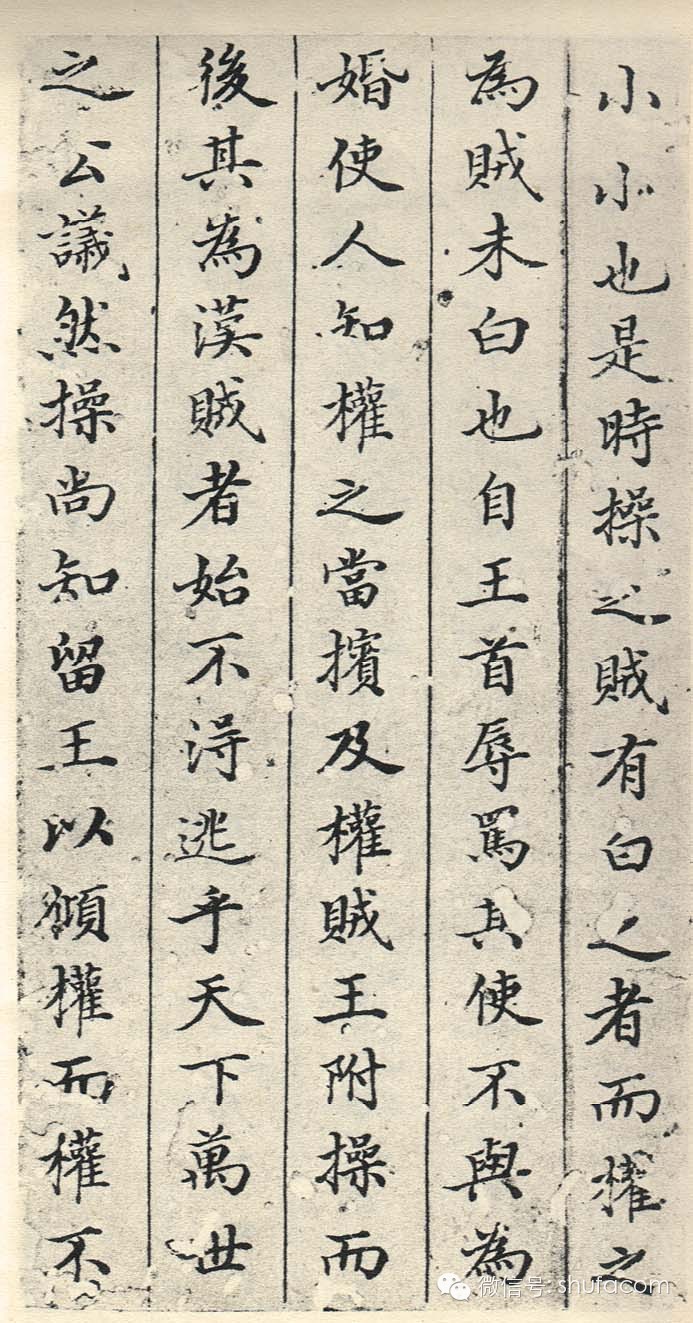 小小也是時操之賊有白之者而權之
為賊未白也自王首辱罵其使不與為
婚使人知權之當擯及權賊王附操而
後其為漢賊者始不得逃乎天下萬世
之公議然操尚知留王以傾權而權不
微信号: shufacom